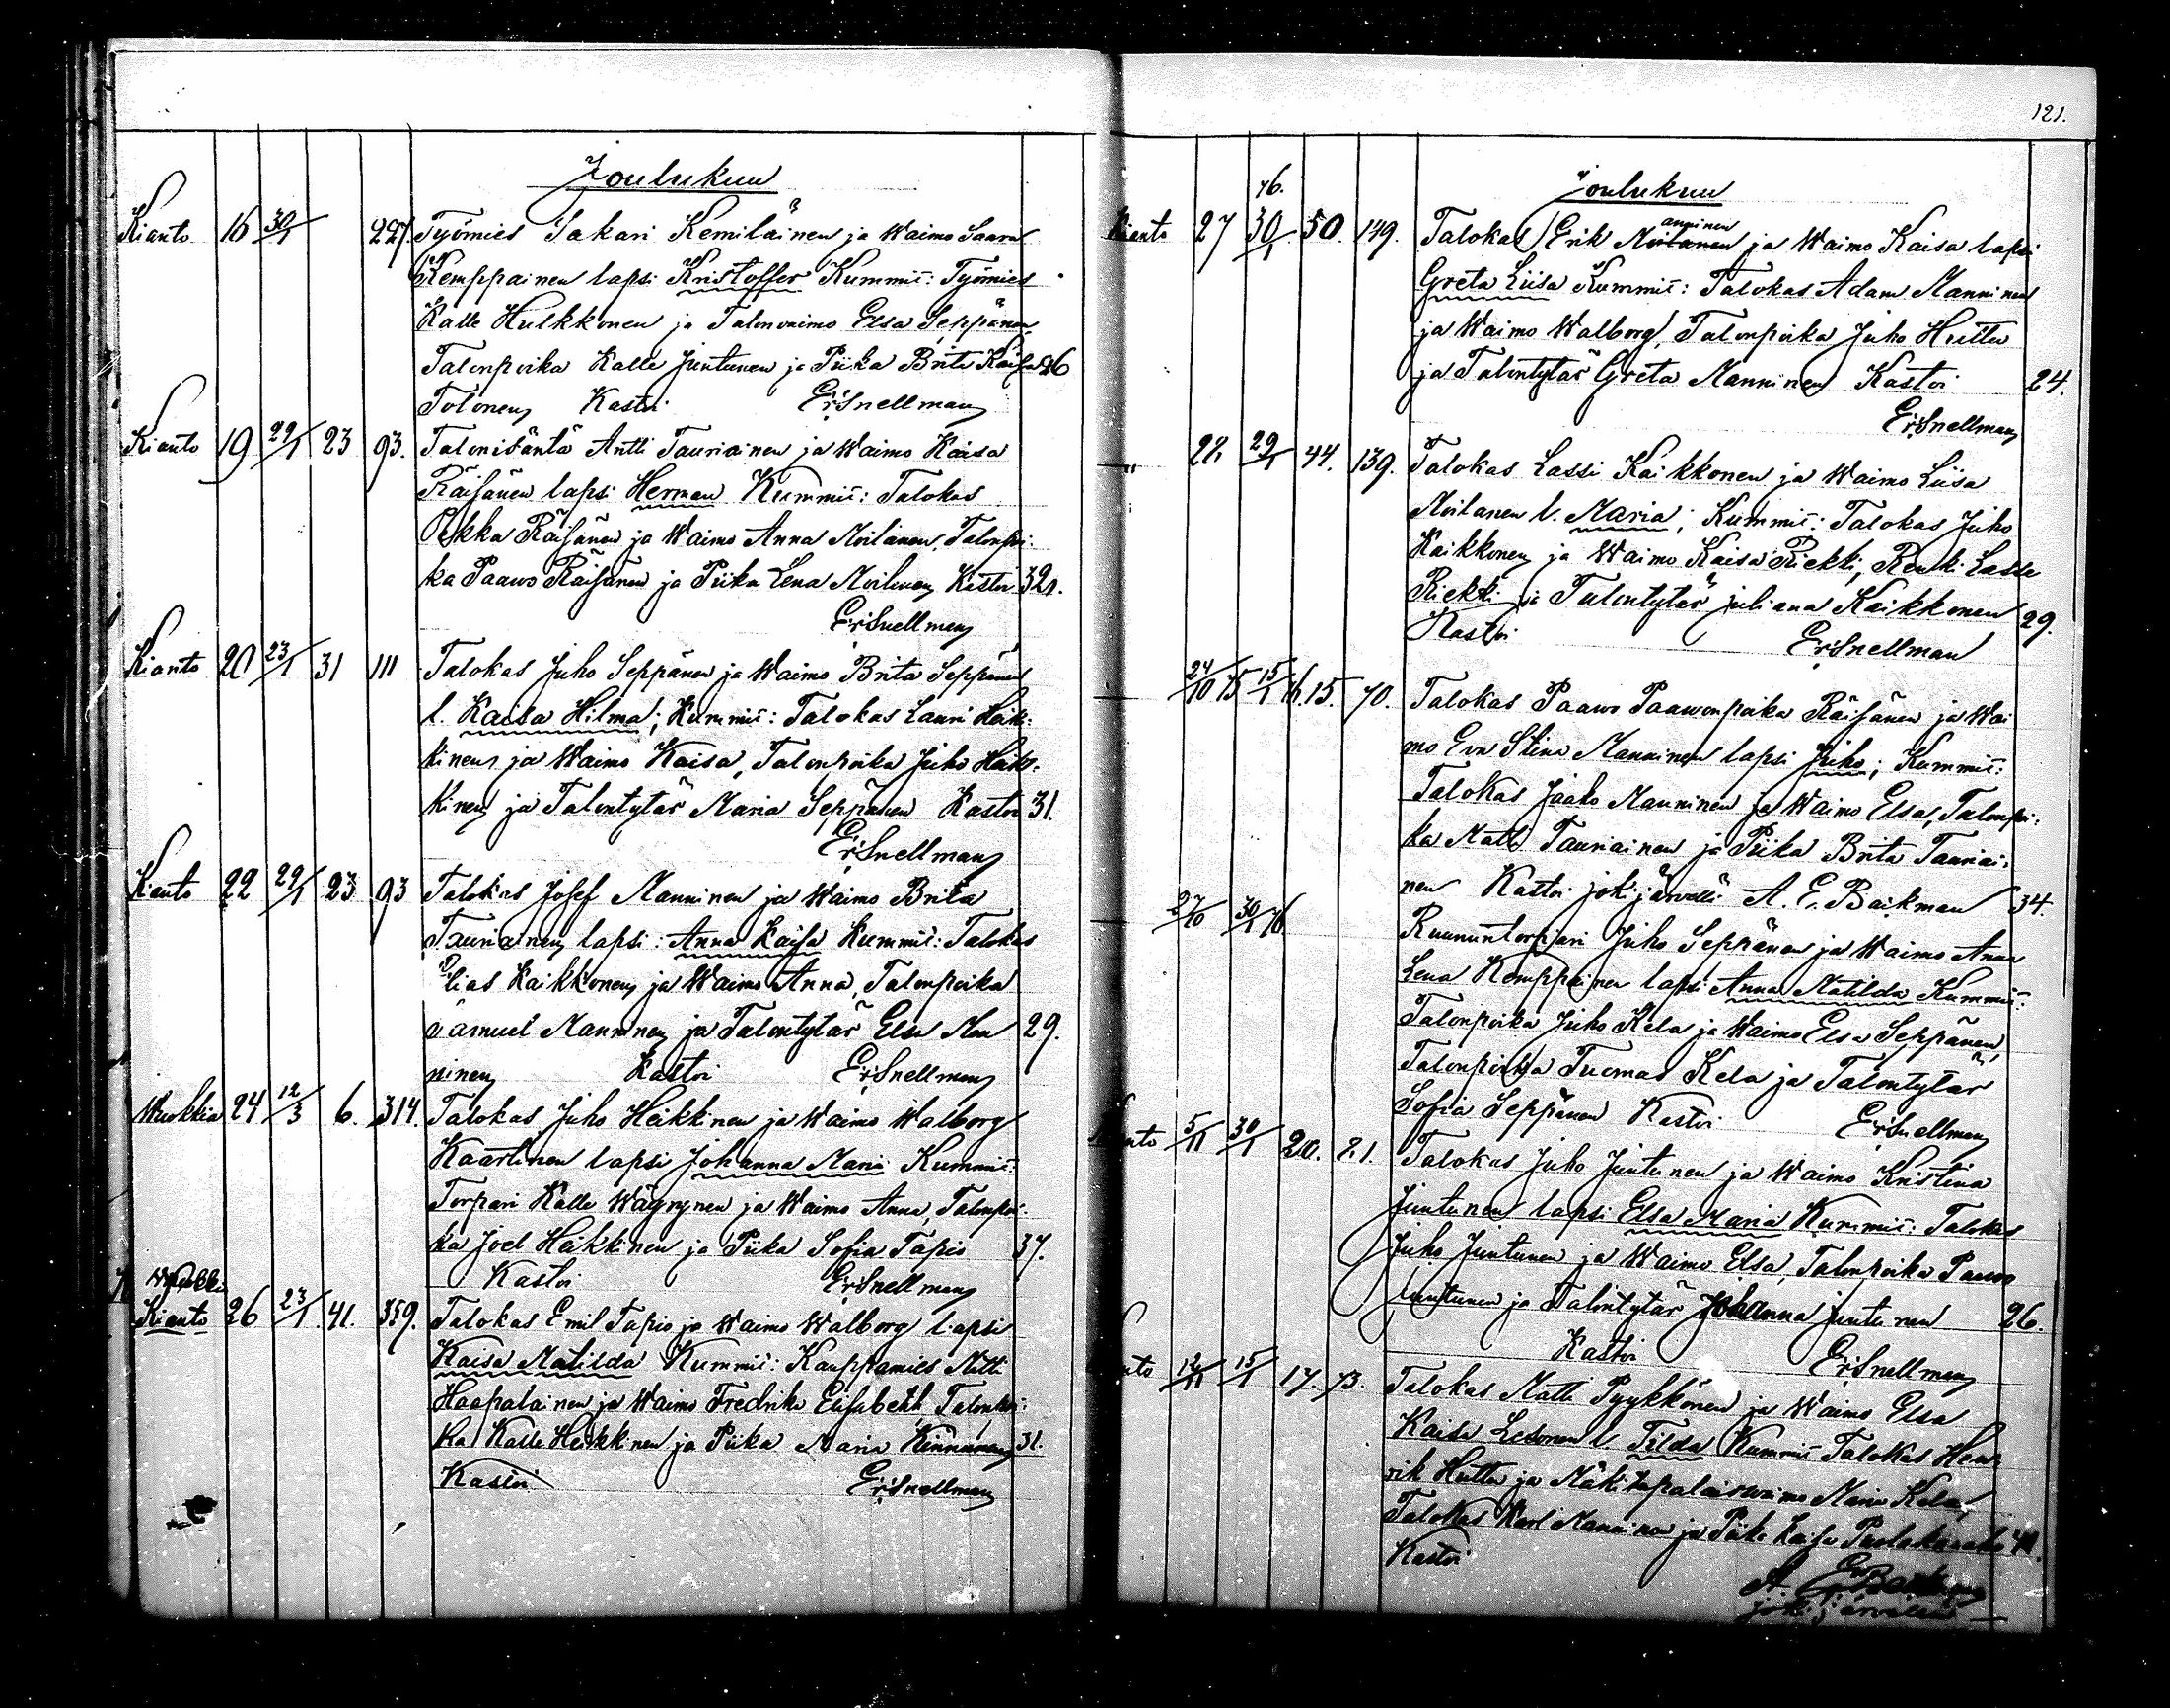 121.
Joulukuu
Kianto 16 30/1 227. Työmies Sakari Kemiläinen ja Waimo Saara
Kemppainen lapsi Kristoffer Kummit: Työmies
Kalle Hulkkonen ja Talonwaimo Elsa Seppänen,
Talonpoika Kalle Juntunen ja Piika Brita Kaisa 26
Tolonen Kastoi Er. Snellman
Kianto 19 29/1 23 93. Talonisäntä Antti Tauriainen ja Waimo Kaisa
Räisänen lapsi Herman Kummit: Talokas
Pekka Räisänen ja Waimo Anna Moilanen, Talonpoi-
ka Paawo Räisänen ja Piika Lena Moilanen Kastoi 32.
Er. Snellman
Kianto 20 23/1 31 111 Talokas Juho Seppänen ja Waimo Brita Seppänen
l. Kaisa Hilma; Kummit: Talokas Lauri Heik-
kinen ja Waimo Kaisa, Talonpoika Juho Heik-
kinen ja Talontytär Maria Seppänen Kastoi 31.
Er. Snellman
Kianto 22 29/1 23 93 Talokas Josef Manninen ja Waimo Brita
Tauriainen lapsi: Anna Kaisa Kummit: Talokas
Elias Kaikkonen ja Waimo Anna, Talonpoika
Samuel Manninen ja Talontytär Elsa Man 29.
ninen Kastoi Er. Snellman
Wuokki 24 12/3 6. 314. Talokas Juho Heikkinen ja Waimo Walborg
Kaartinen lapsi Johanna Maria Kummit:
Torpari Kalle Wäyrynen ja Waimo Anna, Talonpoi-
ka Joel Heikkinen ja Piika Sofia Tapio 37.
Kastoi Er. Snellman
Wuokki
Kianto 26 23/1 41. 359. Talokas Emil Tapio ja Waimo Walborg lapsi
Kaisa Matilda Kummit: Kauppamies Matti
Haapalainen ja Waimo Fredrika Elisabeth, Talonpoi-
ka Kalle Heikkinen ja Piika Maria Kinnunen 31.
Kastoi Er. Snellman
Joulukuu
76.
Kianto 27 30/1 50. 149. Talokas Erik Moilanen anninen ja Waimo Kaisa lapsi
Greta Liisa Kummit: Talokas Adam Manninen
ja Waimo Walborg, Talonpoika Juho Huttu
ja Talontytär Greta Manninen Kastoi 24.
Er. Snellman
" 22, 29/1 44. 139. Talokas Lassi Kaikkonen ja Waimo Liisa
Moilanen l. Maria; Kummit: Talokas Juho
Kaikkonen ja Waimo Kaisa Riekki, Renki Lasse
Riekki ja Talontytär Juliana Kaikkonen 29.
Kastoi Er. Snellman
24/10 75 15/1 76. 15. 70. Talokas Paawo Paawonpoika Räisänen ja Wai
mo Ewa Stina Manninen lapsi Juho; Kummit:
Talokas Jaako Manninen ja Waimo Elsa, Talonpoi-
ka Matti Tauriainen ja Piika Brita Tauriai-
nen Kastoi jokijärvellä A. E. Backman 34.
27/10 30/1 76 Ruununtorpari Juho Seppänen ja Waimo Anna
Lena Kemppainen lapsi Anna Matilda Kummit:
Talonpoika Juho Kela ja Waimo Elsa Seppänen,
Talonpoika Tuomas Kela ja Talontytär
Sofia Seppänen Kastoi Er. Snellman
Kianto 5/11 30/1 20. 81. Talokas Juho Juntunen ja Waimo Kristina
Juntunen lapsi Elsa Maria Kummit: Talokas
Juho Juntunen ja Waimo Elsa, Talonpoika Paawo
Juntunen ja Talontytär Johanna Juntunen 26.
Kastoi Er. Snellman
Kianto 12/11 15/1 17. 73. Talokas Matti Pyykkönen ja Waimo Elsa
Kaisa Lesonen l. Tilda Kummit Talokas Hen-
rik Huttu ja Mäkitupalaiswaimo Maria Kela,
Talokas Karl Manninen ja Piika Kaisa
Kastoi
A. E. Backman
jokijärvellä